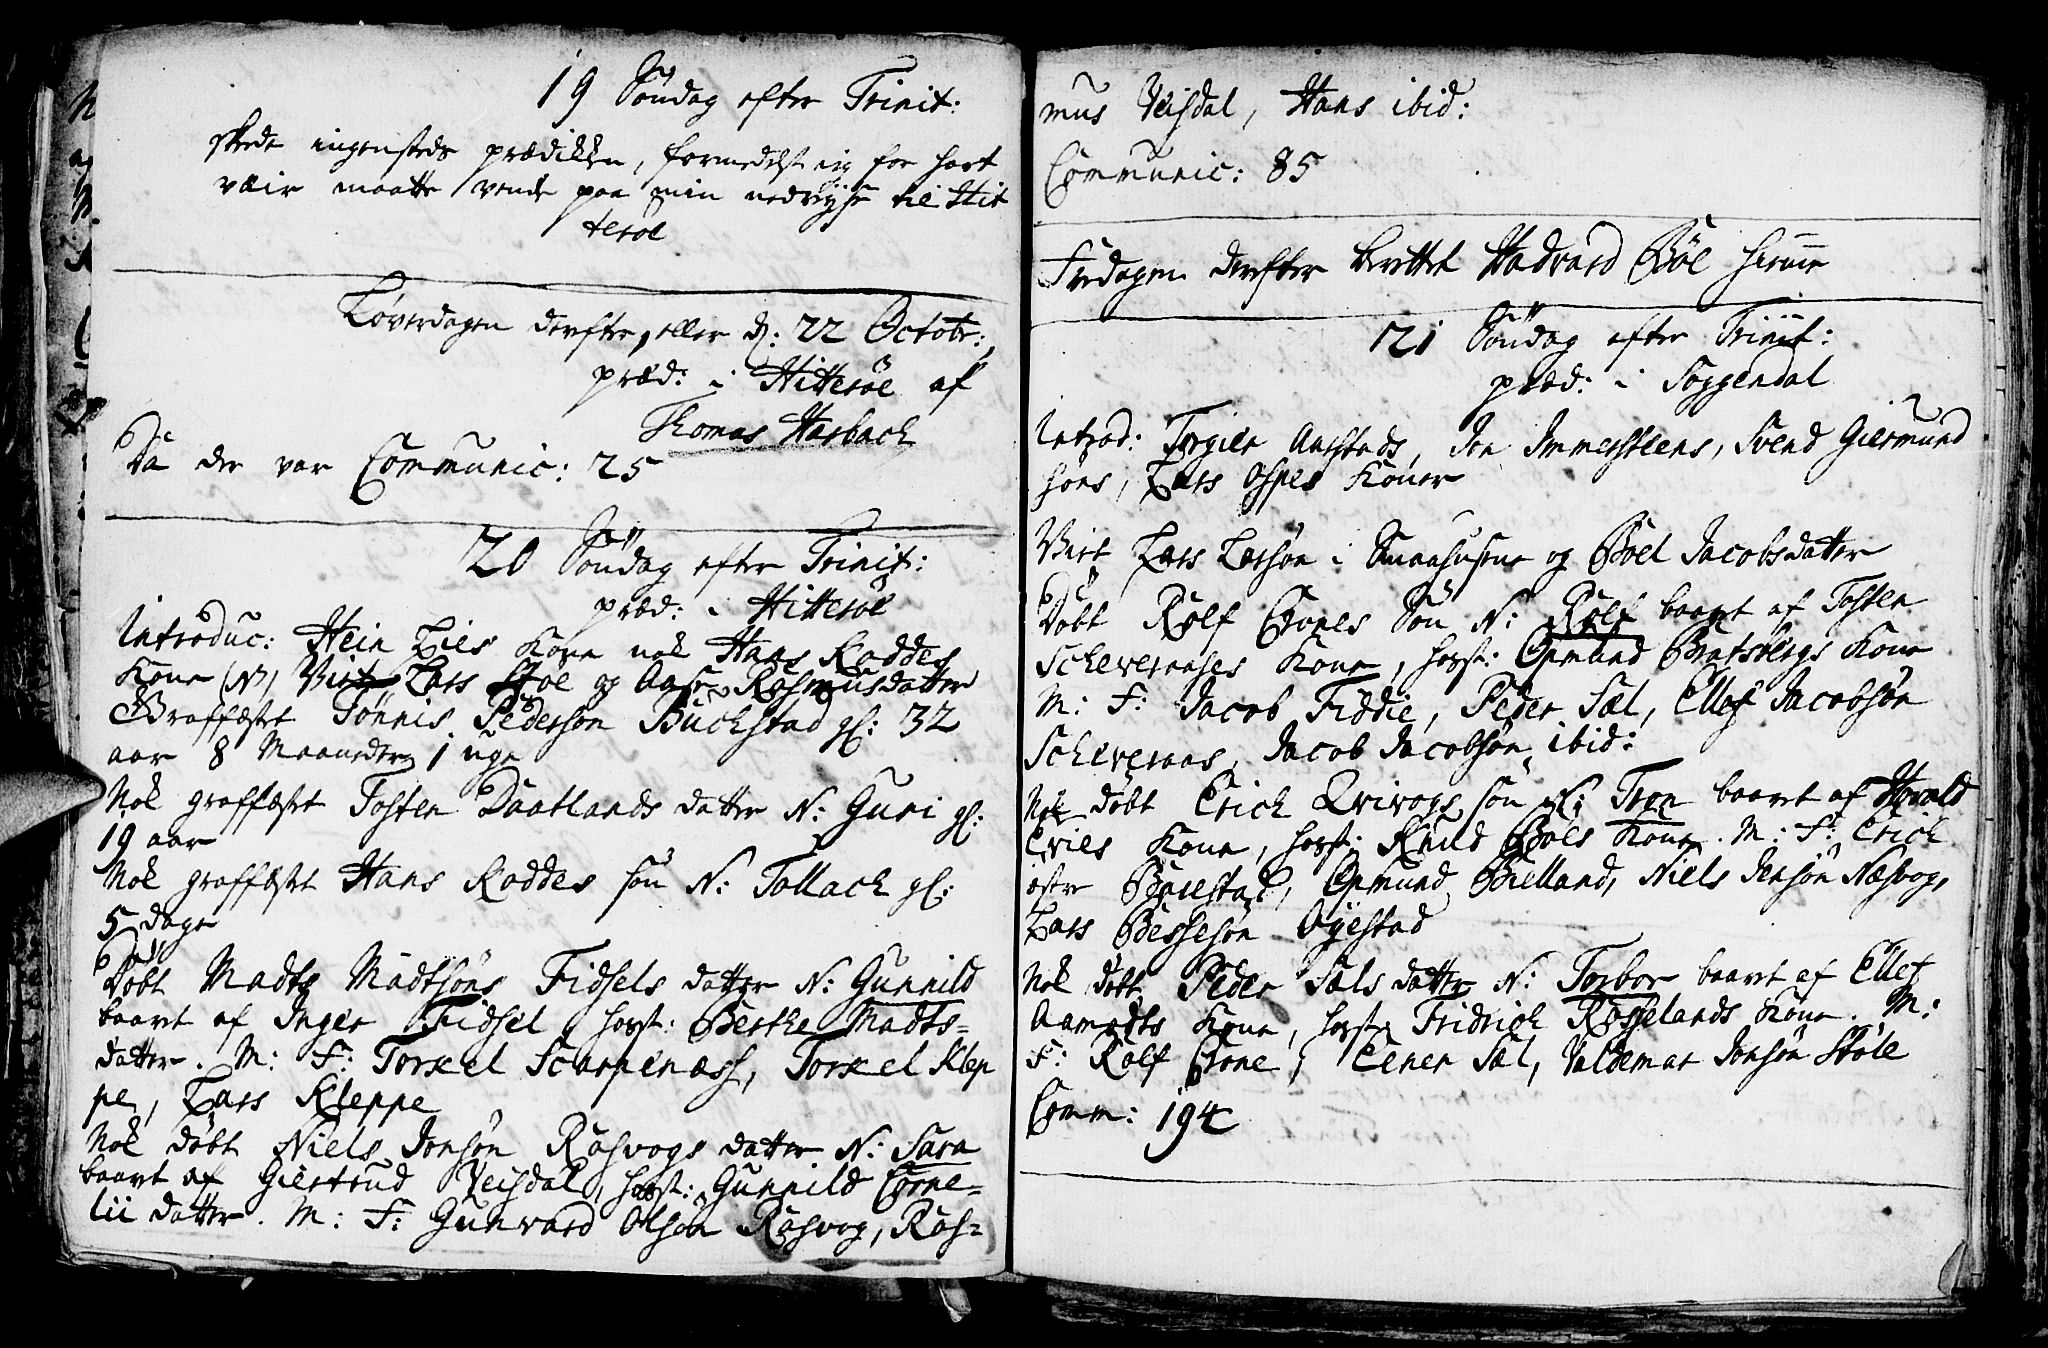 19 Söndag efter Trinit:
skede ingensteds prædikken, formedelst ieg for hart
væir maatte vende paa min nedrejse til Hit
tesöe
Löverdagen derefter, eller d: 22 Octobr:
præd: i Hittesöe af
Thomas Harbach
Da der var Communic: 25
20 Söndag efter Trinit:
præd: i Hittesöe
Introduc: Hein Lies Kone nok Hans Roddes
Kone (N) Viet Lars Stoe og Aase Rasmusdatter
Graffæstet Tönnis Pederson Buckstad gl: 32
aar 8 Maaneder 1 uge
Nok graffæstet Tosten Daatlands datter N: Guri gl:
19 aar
Nok graffæstet Hans Roddes sön N: Tallach gl:
5 dage
Döbt Madts Madtsöns Fidsels datter N: Gunnild
baaret af Inger Fidsel, host: Berthe Madts-
datter. M: F: Torkel Scarpenæss, Torkel Klep
pe, Lars Kleppe
Nok döbt Niels Jonsön Rasvogs datter N: Sara
baaret af Giertrud Veisdal, host: Gunnild Corne-
lii datter. M: F: Gunvard Olsön Rasvog, Ras-
mus Veisdal, Hans ibid:
Communic: 85
Fredagen derefter berettet Hadvard Böe hieme
21 Söndag efter Trinit:
præd: i Soggendal
Introd: Torgier Aarstads, Jon Immersteens, Svend Giermund
söns, Lars Ospes Koner
Viet Lars Larsön i Smaahusene og Boel Jacobsdatter
Döbt Rolf Erones Sön N: Rolf baaret af Tosten
Scheveraases Kone, host: Omund Bratsbergs Kone
M: F: Jacob Fiddie, Peder Sæl, Ellef Jacobsön
Scheveraas, Jacob Jacobsön ibid:
Nok döbt Erich Qvivogs sön N: Tron baaret af Harald
Eries Kone, host: Knud Böes Kone. M: F: Erich
östre Barestad, Omund Bielland, Niels Jensön Næsvog,
Lars Bessesön Ayestad
Nok döbt Peder Sæls datter N: Torbor baaret af Ellef
Aamodts Kone, host: Fridrich Rosselands Kone. M:
F: Rolf Erone, Eener Sæl, Valdemar Jonsön Stöle
Comm: 194